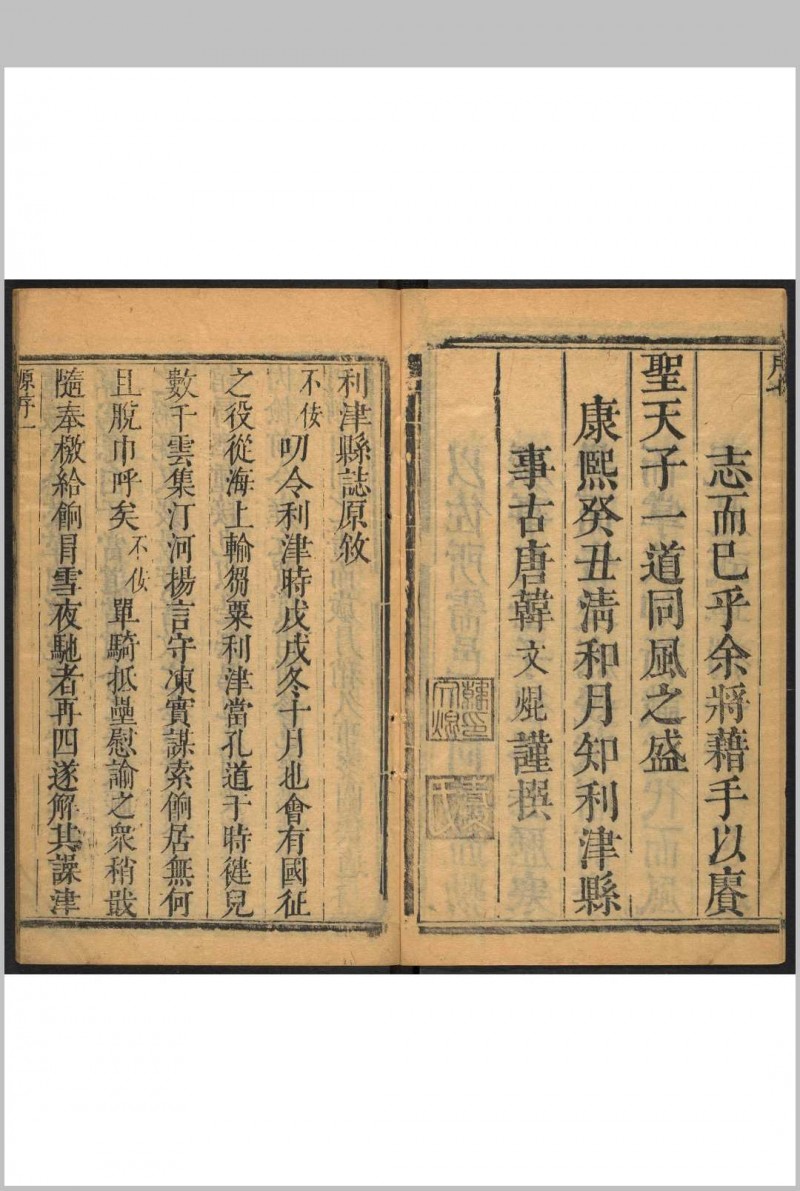 志而已乎余將藉手以賡
聖天子一道同風之盛
康熙癸丑清和月知利津縣
事古唐韓文焜謹撰
利津縣誌原敘
不佞叨令利津時戊戌冬十月也會有國征
之役從海上輸芻粟利津當孔道于時健兒
數千雲集汀河揚言守凍實謀索餉居無何
且脫巾呼矣不佞單騎抵壘慰諭之衆稍戢
隨奉檄給餉冐雪夜馳者再四遂解其譟津
原序一